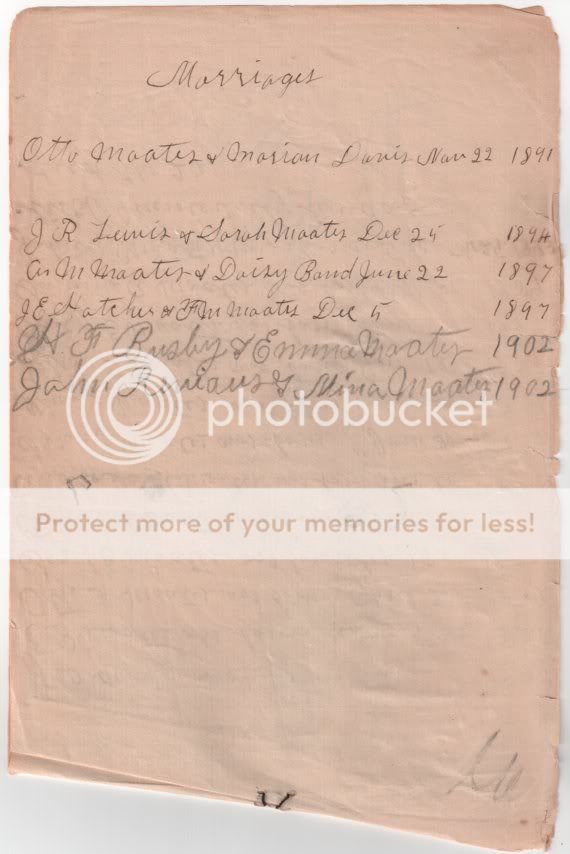 Marriages
Otto Maates & Marian Davis Nov 22 1891
J R Lewis & Sarah Maates Dec 25 1894
M Maates & Daisy Bond June 22 1897
J E Hatcher & F M Maates Dec 5 1897
H. F Busby & Emma Maates 1902
John & Mina Maates 1902
photobucket
Protect more of your memories for less!